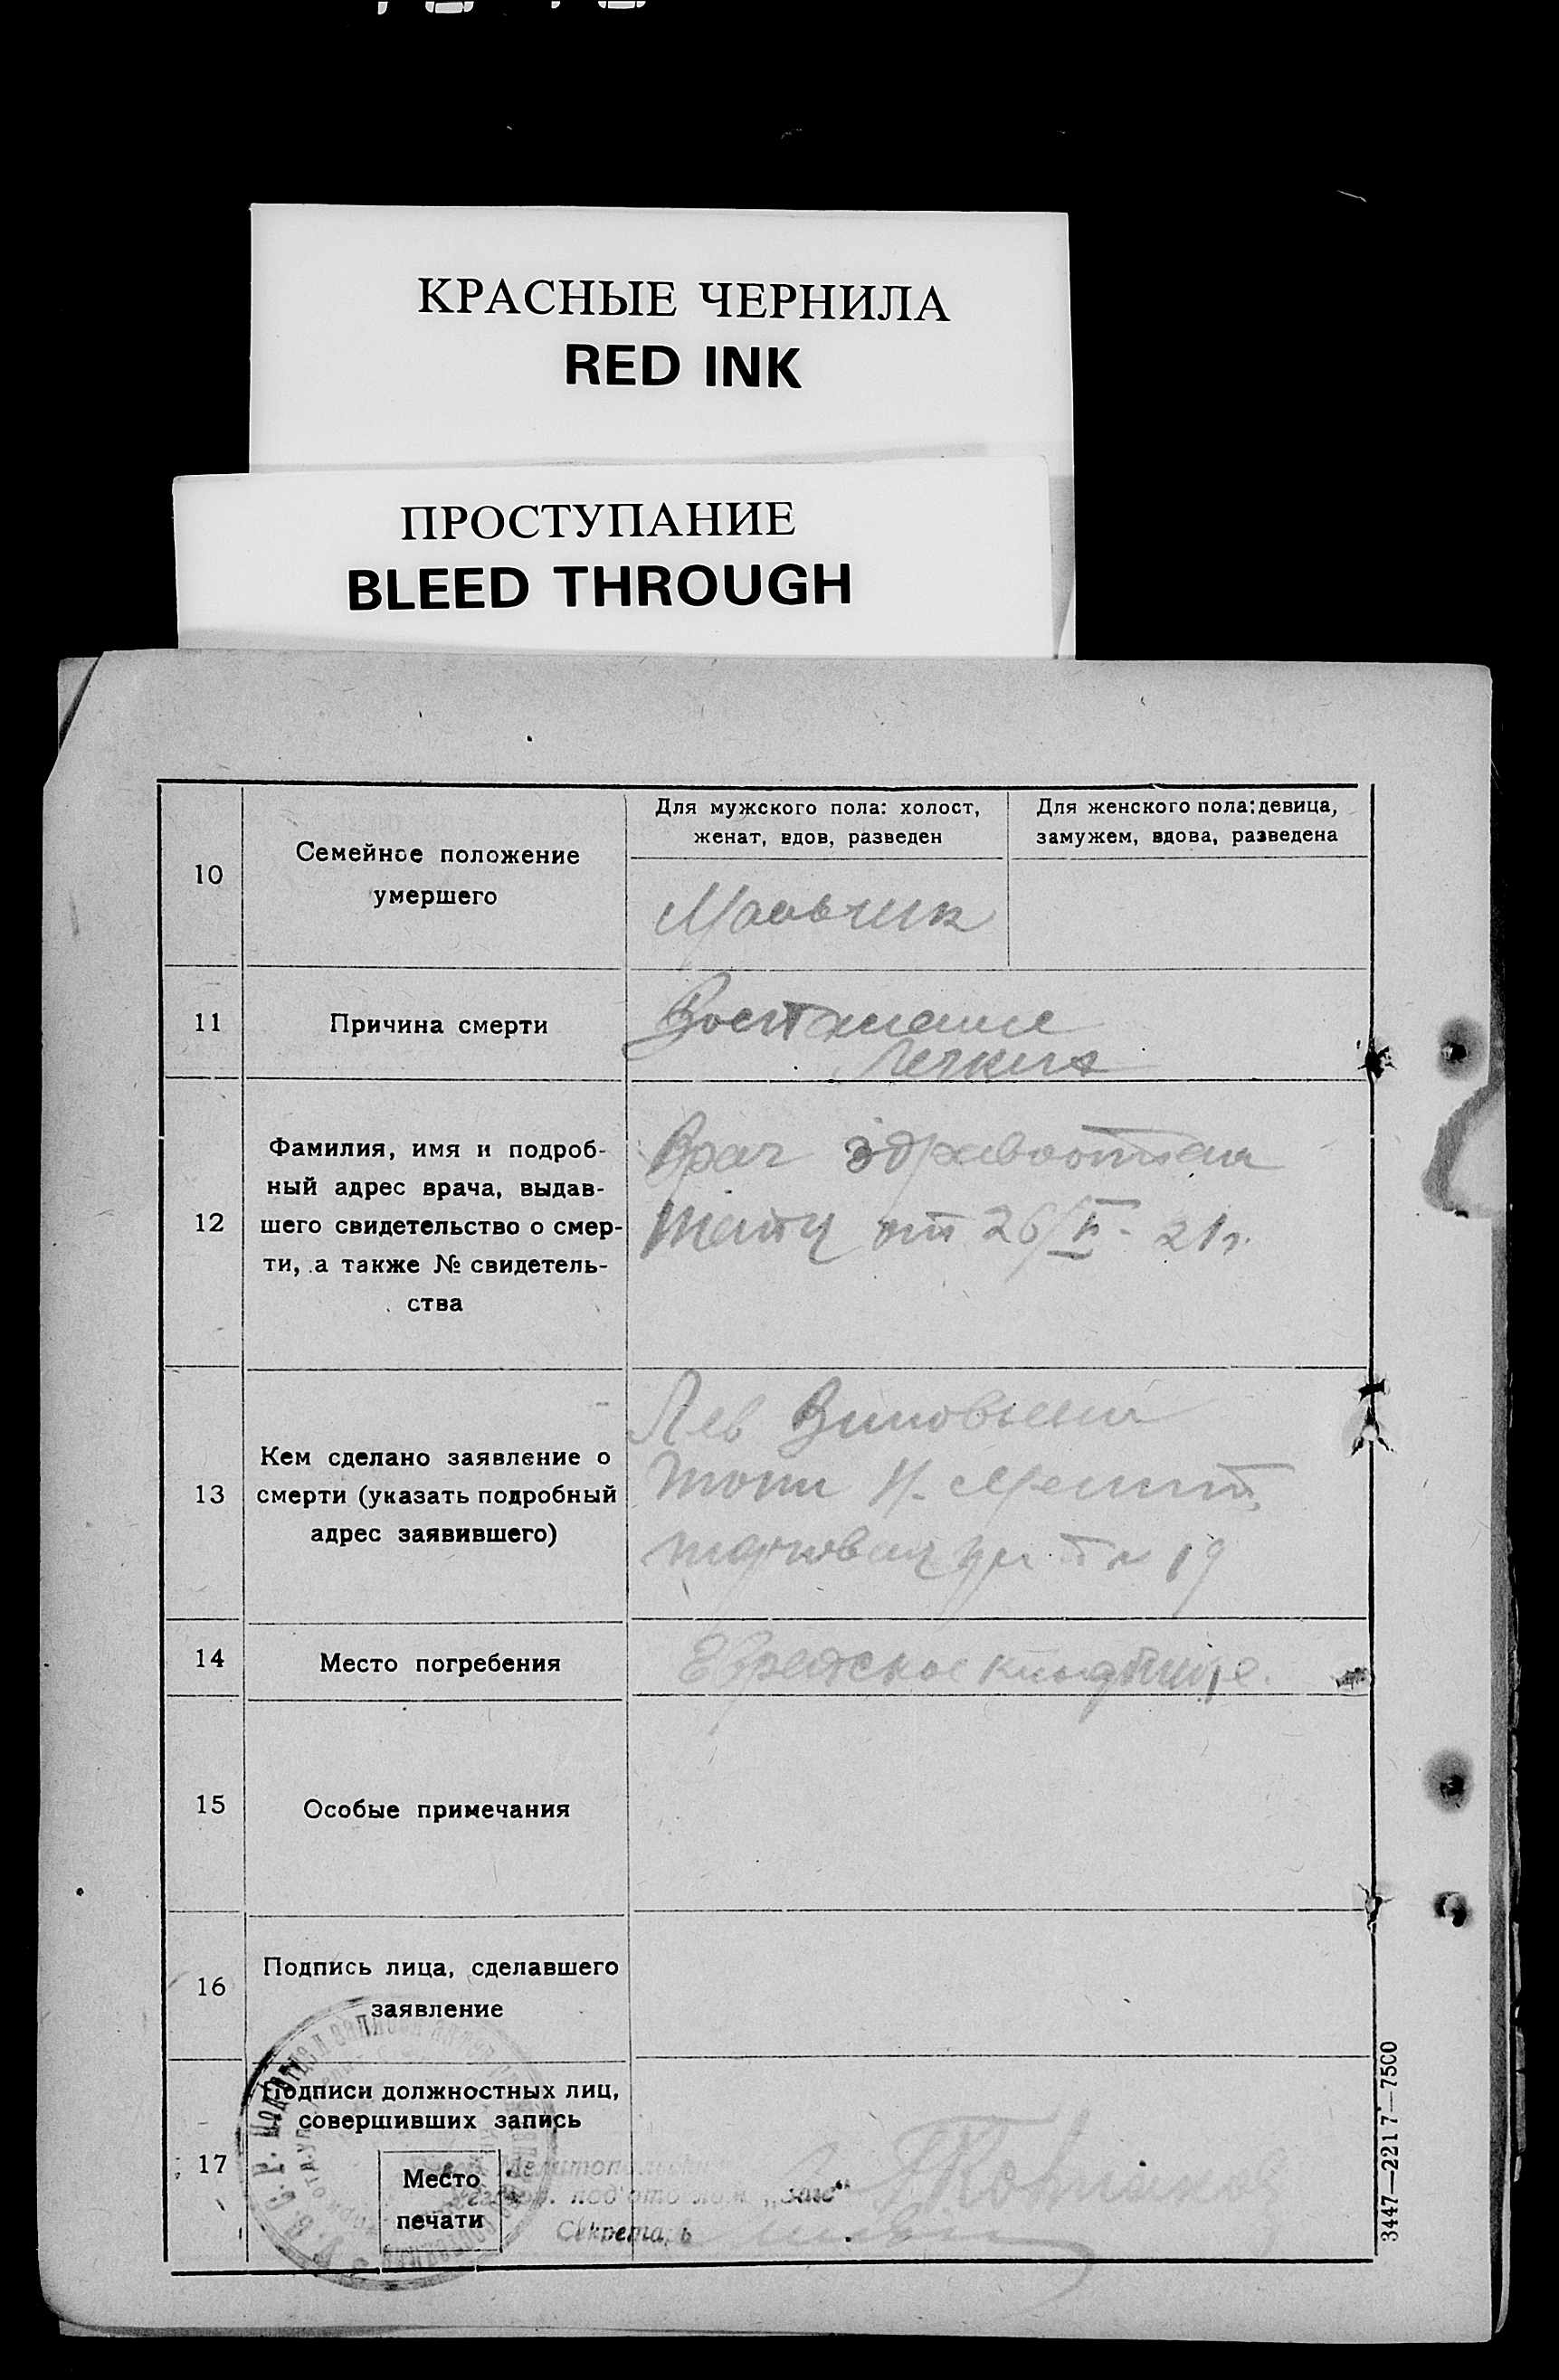 КРАСНЫЕ ЧЕРНИЛА
RED INK
ПРОСТУПАНИЕ
BLEED THROUGH
10
Семейное положение
умершего
Для мужского пола: холост,
женат, вдов, разведен
Для женского пола: девица,
замужем, вдова, разведена
Мальчик
11
Причина смерти
Воспаление
легких
12
Фамилия, имя и подроб-
ный адрес врача, выдав-
шего свидетельство о смер-
ти, а также № свидетель-
ства
Врач
от 26/II - 21 г.
13
Кем сделано заявление о
смерти (указать подробный
адрес заявившего)
Лев
19
14
Место погребения
Еврейское кладбище.
15
Особые примечания
16
Подпись лица, сделавшего
заявление
17
Подписи должностных лиц,
совершивших запись
Место
печати
„загс“
Секретарь
3447—2217—7500